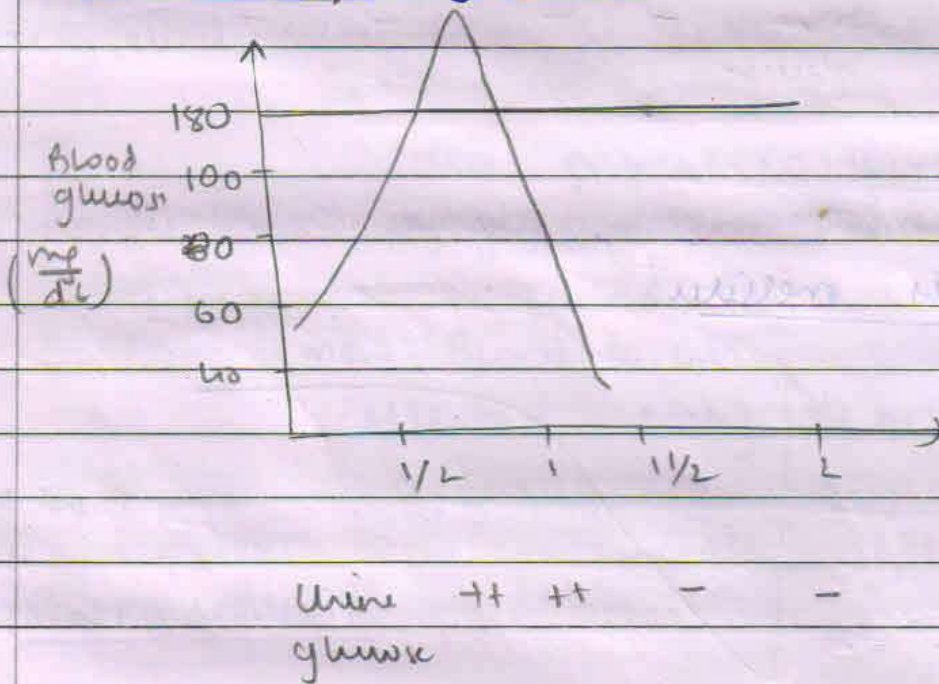 180
Blood
glucos
100
80
(mg/dL)
60
40
1/2 1 1 1/2 2
Urine ++ ++ - -
glucose